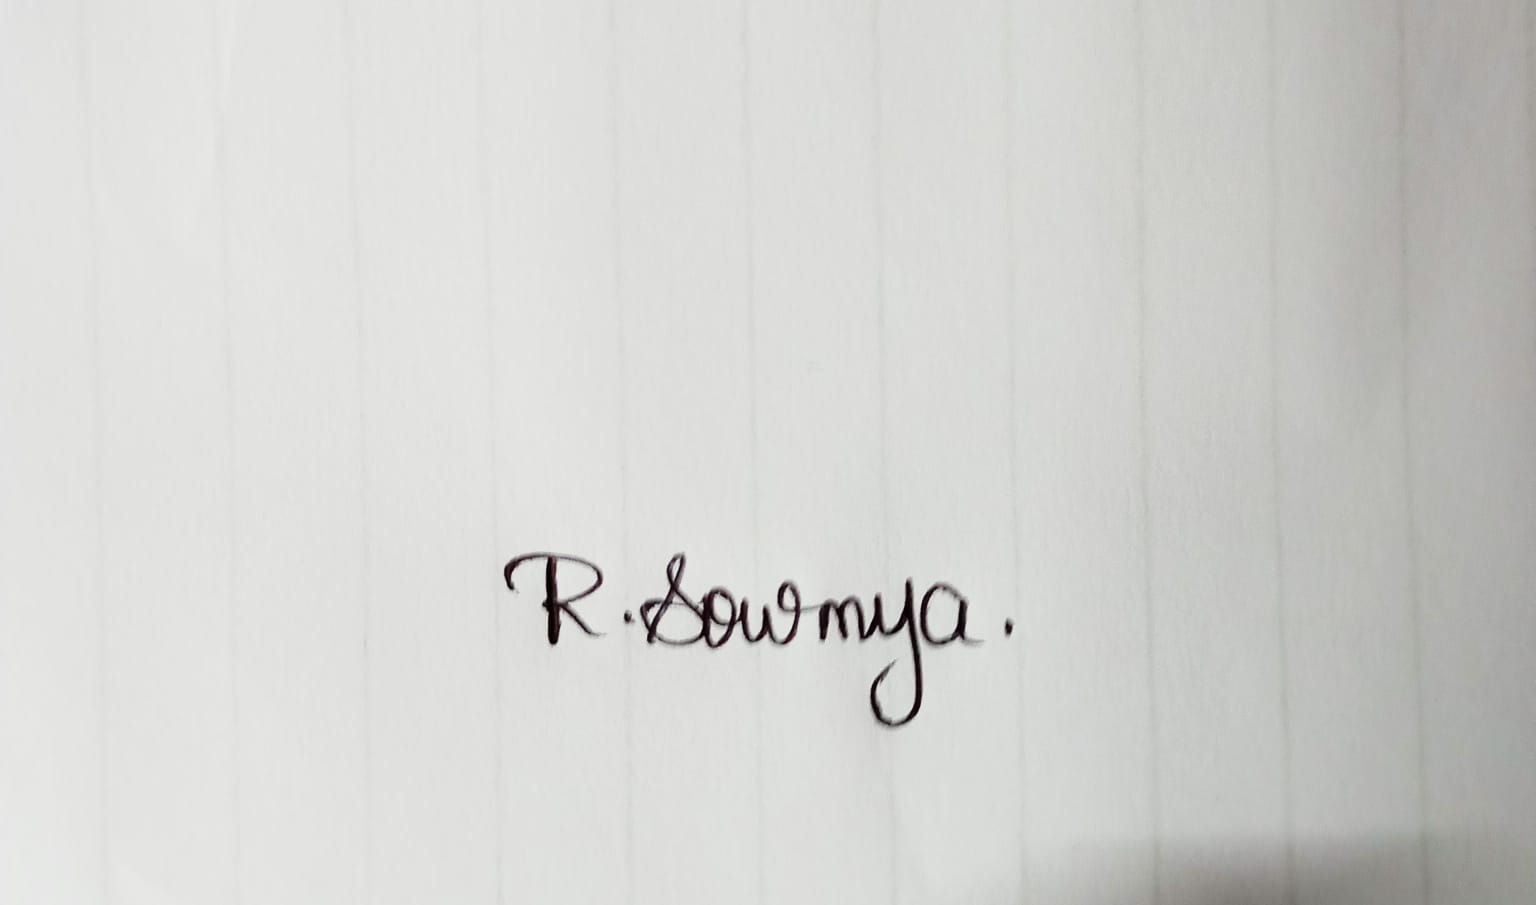 R. Sowmya.